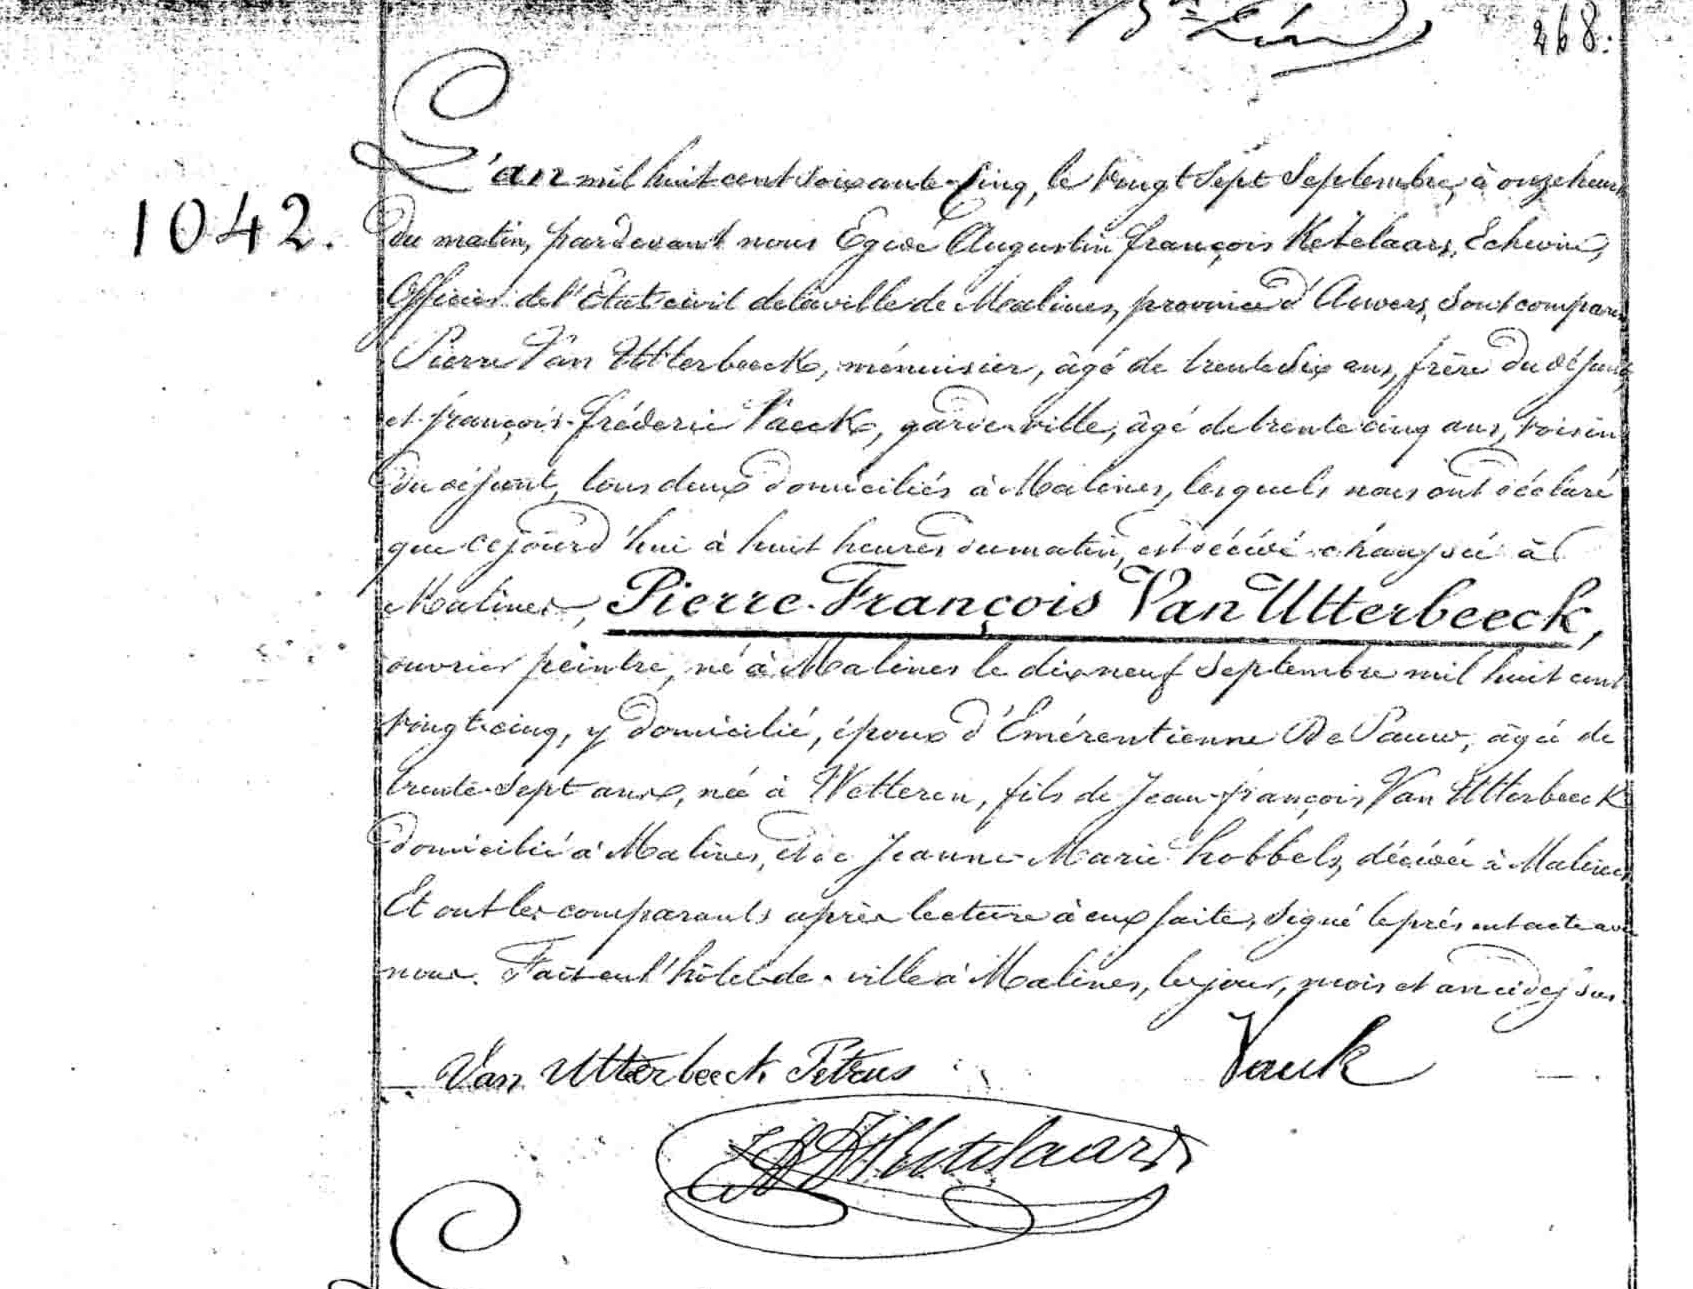 268.
1042.
L'an mil huit cent soixante-cinq, le vingt sept Septembre, à onze heures
du matin, pardevant nous Egide Augustin François Ketelaars, Echevin,
Officier de l'Etat civil de la ville de Malines, province d'Anvers, sont comparus
Pierre Van Utterbeeck, menuisier, âgé de trente six ans, frère du défunt,
et françois-fréderic Vaeck, garde-ville, âgé de trente cinq ans, voisin
du défunt, tous deux domiciliés à Malines, lesquels nous ont déclaré
que cejourd'hui à huit heures du matin, est décédé chaussée à
Malines, Pierre-François Van Utterbeeck,
ouvrier peintre, né à Malines le dix neuf Septembre mil huit cent
vingt-cinq, y domicilié, époux d'Emérentienne De Pauw, âgée de
trente-sept ans, née à Wetteren, fils de Jean-françois Van Utterbeeck
domicilié à Malines, et de Jeanne-Marie hobbels, décédée à Malines
Et ont les comparants après lecture à eux faite, signé le présent acte avec
nous. Fait en l'hôtel-de-ville à Malines, les jour, mois et an ci dessus.
Van Utterbeeck Petrus
Vaeck
Ketelaars